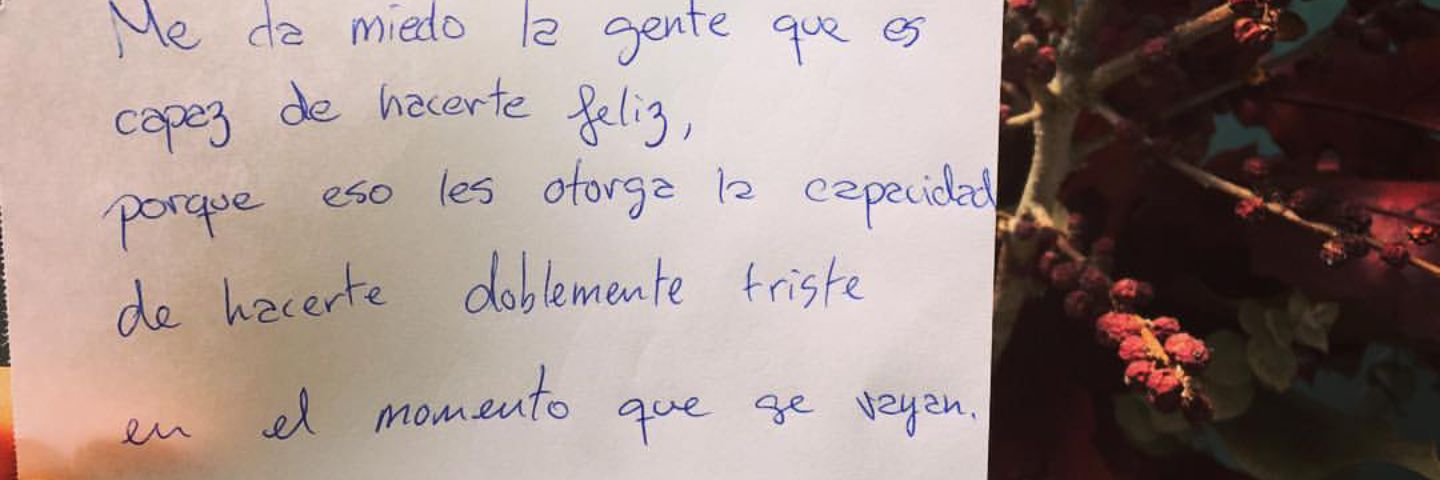 Me da miedo la gente que es
capaz de hacerte feliz,
porque eso les otorga la capacidad
de hacerte doblemente triste
en el momento que se vayan.